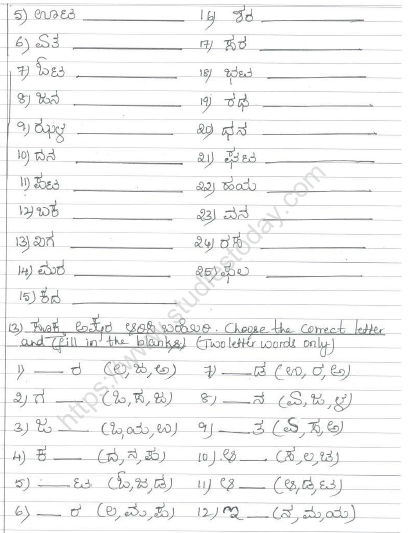 5) ಊಟ ________ 16) ಶರ ________
6) ಏತ ________ 17) ಹರ ________
7) ಓಟ ________ 18) ಭಟ ________
8) ಜನ ________ 19) ರಥ ________
9) ಝಳ ________ 20) ಧನ ________
10) ದನ ________ 21) ಘಟ ________
11) ಪಟ ________ 22) ಹಯ ________
12) ಬಕ ________ 23) ವನ ________
13) ಖಗ ________ 24) ರಸ ________
14) ಮರ ________ 25) ಫಲ ________
15) ಕದ ________
13) ಸೂಕ್ತ ಅಕ್ಷರ ಆರಿಸಿ ಬರೆಯಿರಿ. Choose the correct letter
and (fill in the blanks) (Two letter words only)
1) ___ ರ (ಲ, ಜ, ಅ) 7) ___ ಡ (ಊ, ರ, ಅ)
2) ಗ ___ (ಒ, ಸ, ಜ) 8) ___ ನ (ಏ, ಜ, ಳ)
3) ಜ ___ (ಒ, ಯ, ಉ) 9) ___ ತ (ಏ, ಸ, ಅ)
4) ಕ ___ (ದ, ನ, ಪ) 10) ಆ ___ (ಸ, ಲ, ಚ)
5) ___ ಟ (ಓ, ಜ, ಡ) 11) ಆ ___ (ಆ, ಡ, ಟ)
6) ___ ರ (ಲ, ಮ, ಪ) 12) ಇ ___ (ನ, ಮ, ಯ)
https://www.studiestoday.com